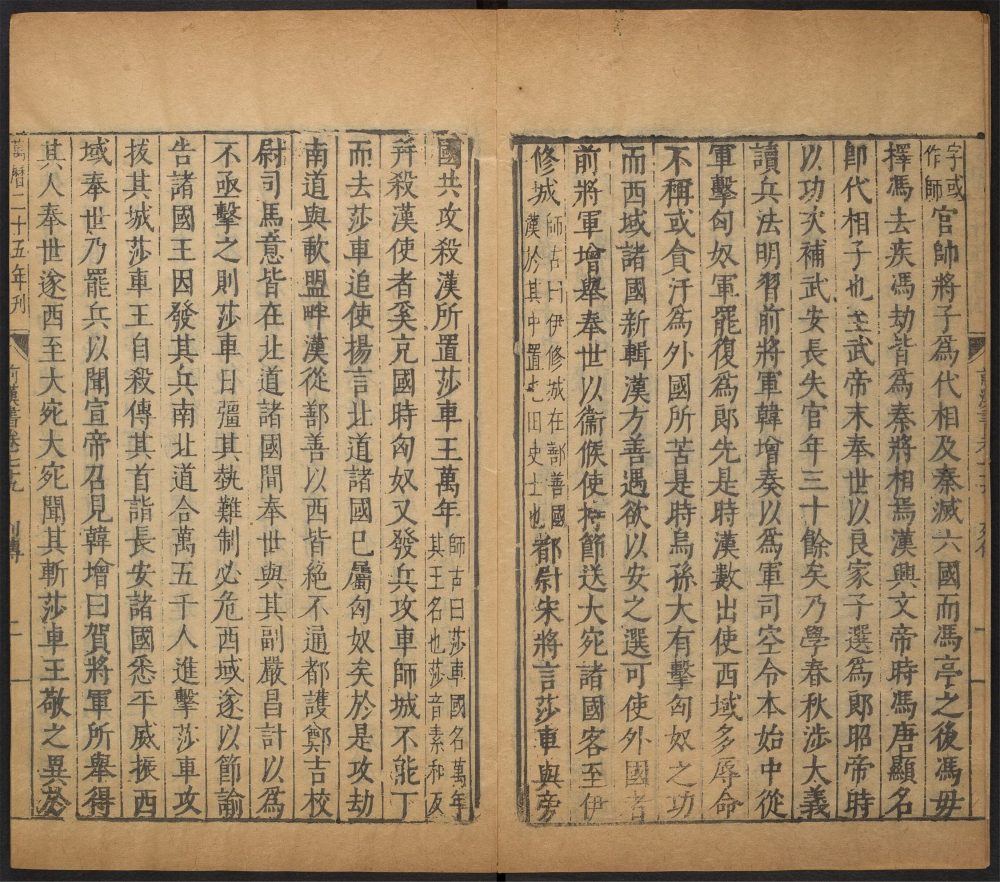 字或
作師
官帥將子爲代相及秦滅六國而馮亭之後馮毋
擇馮去疾馮劫皆爲秦將相焉漢興文帝時馮唐顯名
即代相子也至武帝末奉世以良家子選爲郎昭帝時
以功次補武安長失官年三十餘矣乃學春秋涉大義
讀兵法明習前將軍韓增奏以爲軍司空令本始中從
軍擊匈奴軍罷復爲郎先是時漢數出使西域多辱命
不稱或貪汙爲外國所苦是時烏孫大有擊匈奴之功
而西域諸國新輯漢方善遇欲以安之選可使外國者
前將軍增舉奉世以衞候使持節送大宛諸國客至伊
修城
師古曰伊修城在鄯善國
漢於其中置屯田吏士也
都尉宋將言莎車與旁
國共攻殺漢所置莎車王萬年
師古曰莎車國名萬年
其王名也莎音素和反
并殺漢使者奚充國時匈奴又發兵攻車師城不能下
而去莎車遣使揚言北道諸國已屬匈奴矣於是攻劫
南道與歃盟畔漢從鄯善以西皆絶不通都護鄭吉校
尉司馬意皆在北道諸國間奉世與其副嚴昌計以爲
不亟擊之則莎車日彊其埶難制必危西域遂以節諭
告諸國王因發其兵南北道合萬五千人進擊莎車攻
拔其城莎車王自殺傳其首詣長安諸國悉平威振西
域奉世乃罷兵以聞宣帝召見韓增曰賀將軍所舉得
其人奉世遂西至大宛大宛聞其斬莎車王敬之異於
萬曆二十五年刊
前漢書卷七十九
列傳
二